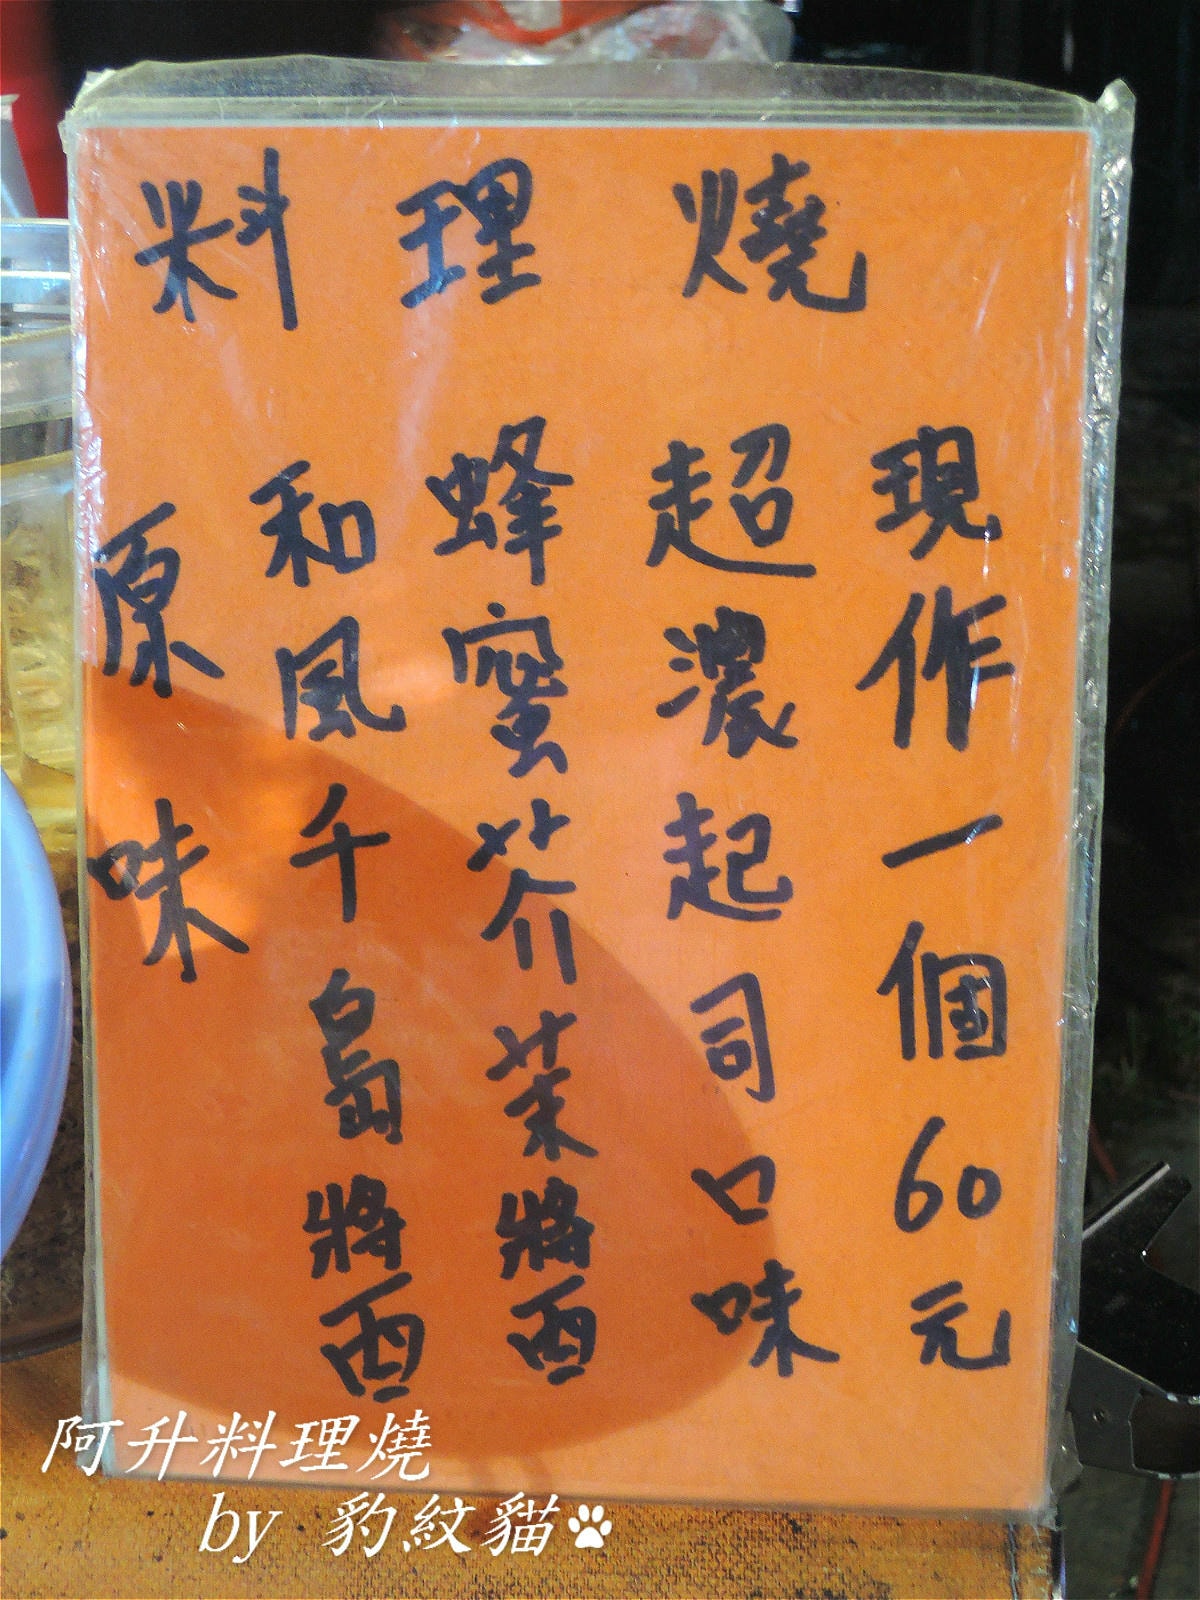 料理燒
現作一個60元
超濃起司口味
蜂蜜芥茉將
和風千島將
原味
阿升料理燒
by 豹紋貓